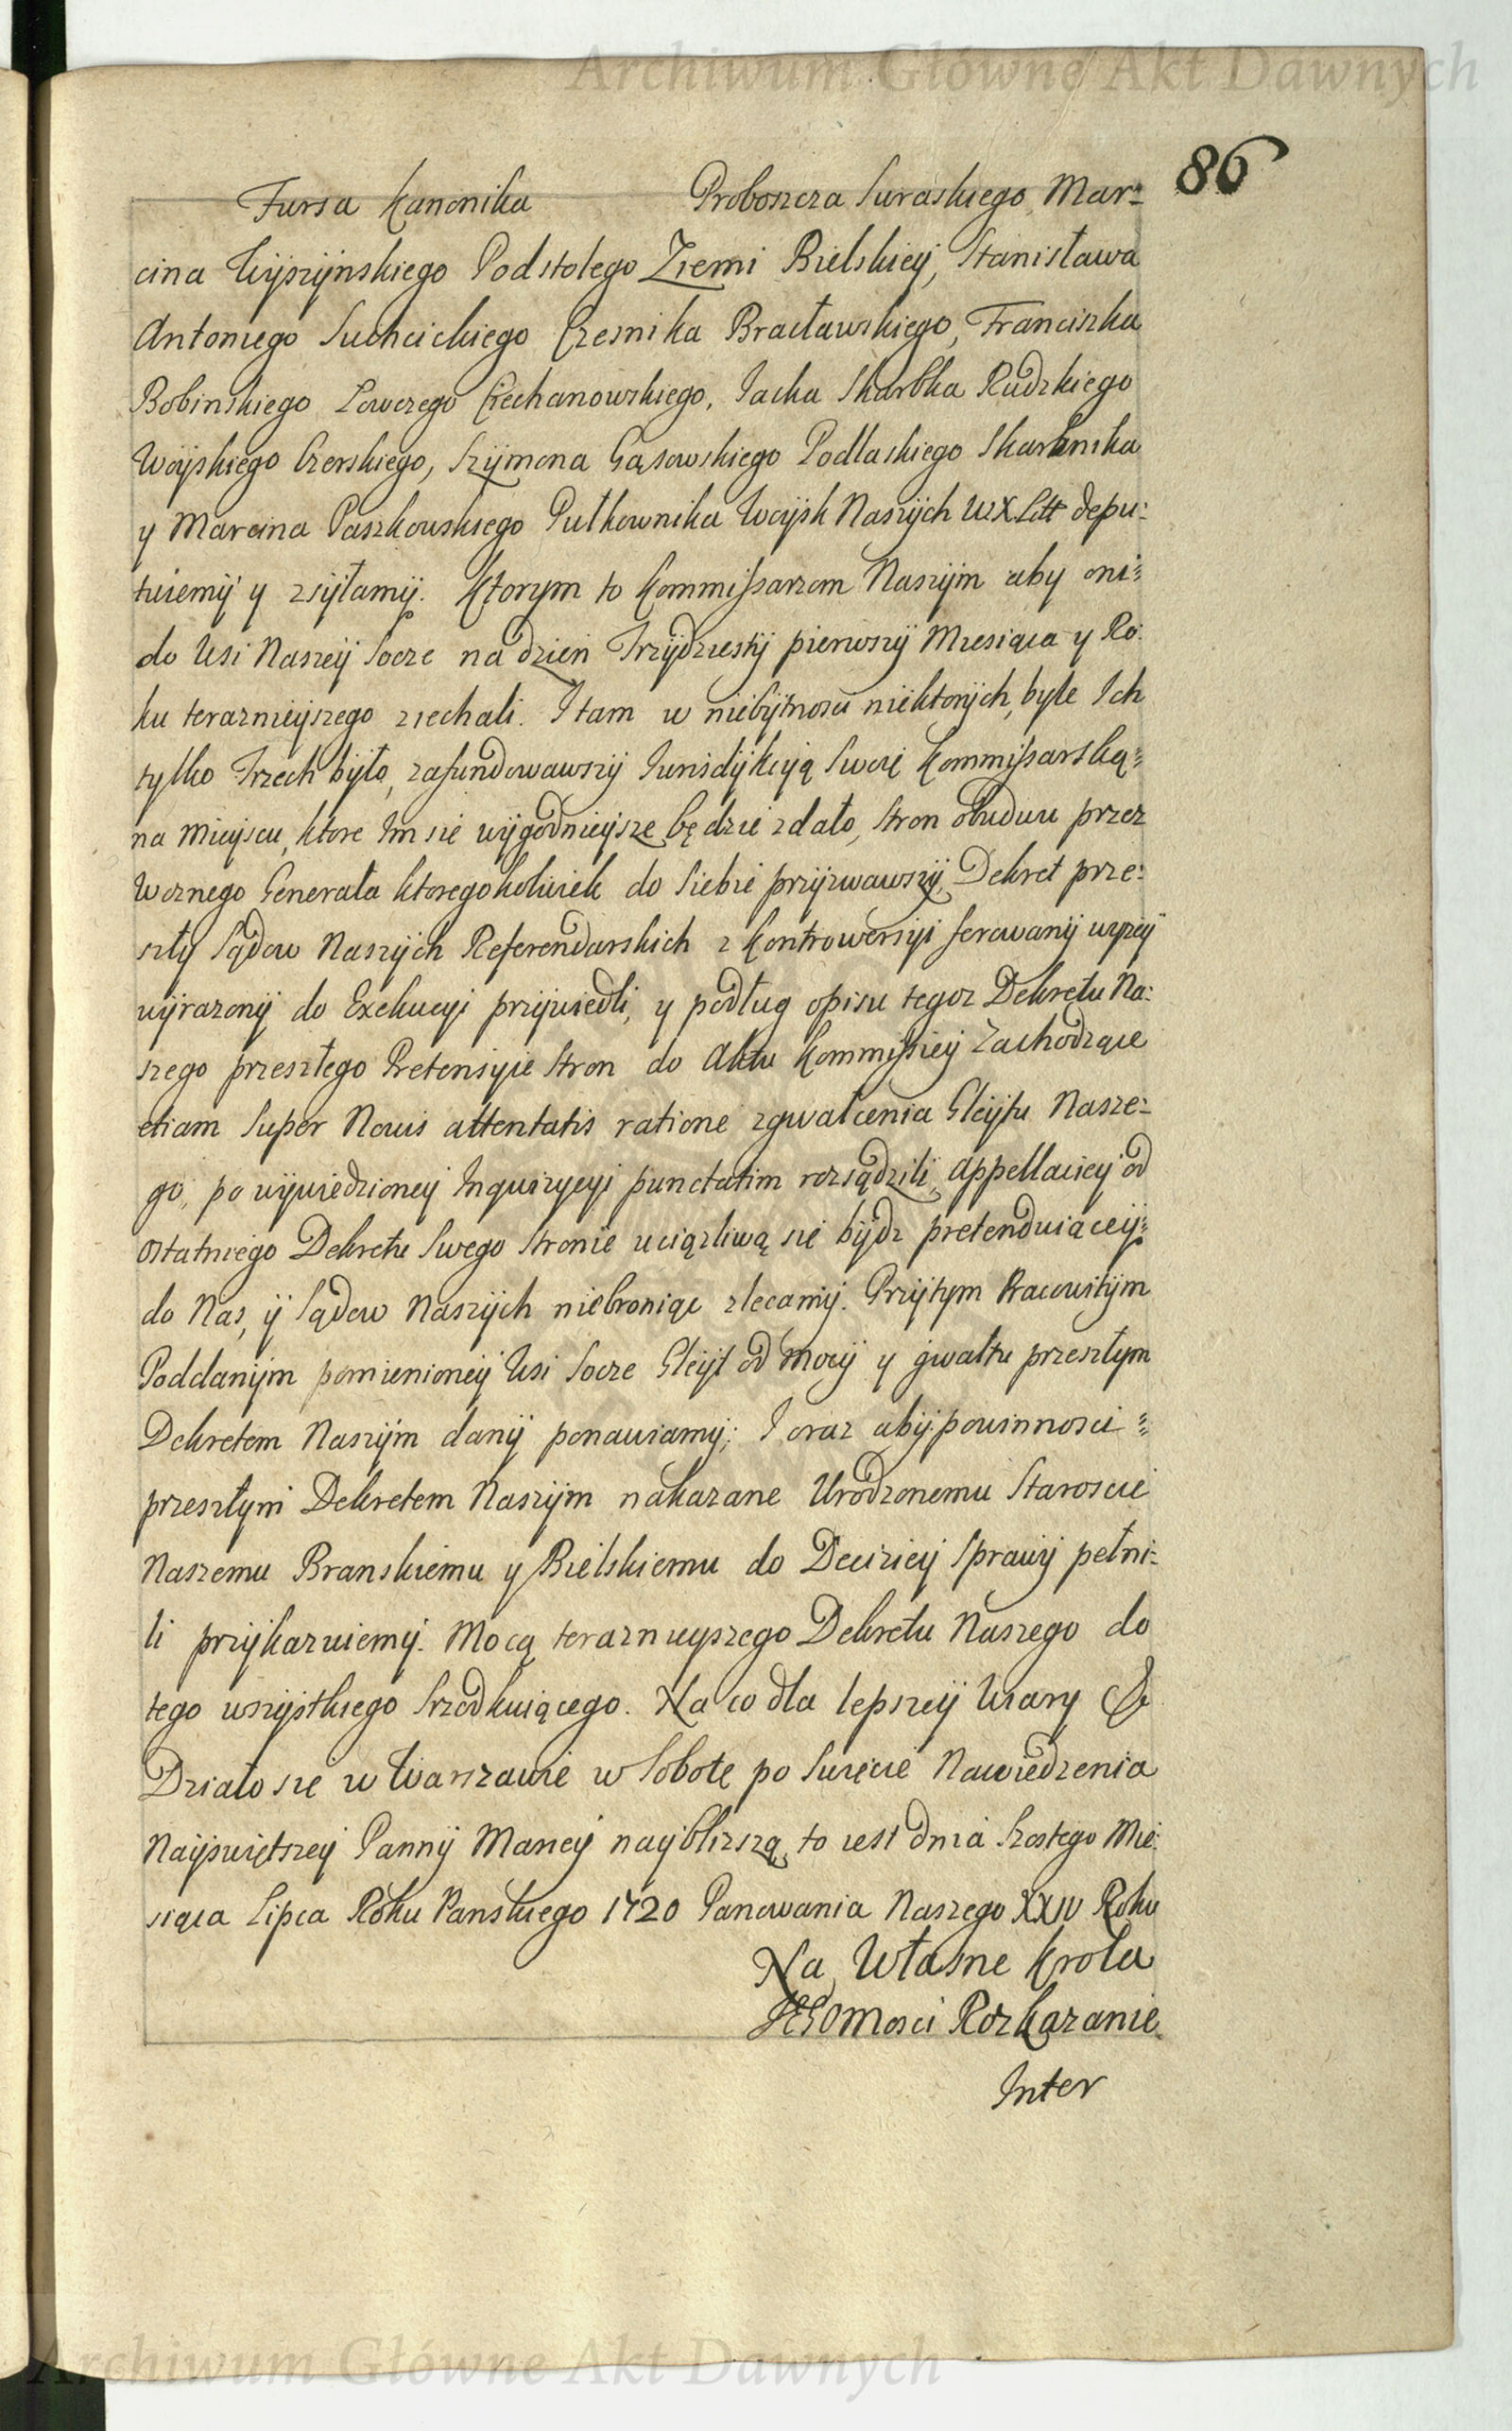 Archiwum Główne Akt Dawnych
86
Fursa Kanonika Proboszcza Suraskiego, Mar=
cina Wyszynskiego Podstolego Ziemi Bielskiey, Stanisława
Antoniego Suchcickiego Czesnika Bracławskiego, Franciszka
Bobinskiego Łowczego Ciechanowskiego, Jacka Skarbka Rudzkiego
Woyskiego Czerskiego, Szymona Gąsowskiego Podlaskiego Skarbnika
y Marcina Paszkowskiego Pułkownika Woysk Naszych WXLitt depu:
tuiemy y zsyłamy. Ktorym to Kommissarzom Naszym aby oni=
do Wsi Naszey Socze na dzien Trzydziesty pierwszy Miesiąca y Ro:
ku teraznieyszego ziechali. I tam w niebytnosci niektorych, byle Ich
tylko Trzech było, zafundowawszy Jurisdykcyą Swoię Kommissarską=
na Mieyscu, ktore Im się wygodnieysze będzie zdało, Stron obudwu przez
Woznego Generała ktoregokolwiek do Siebie przyzwawszy, Dekret prze:
szły Sądow Naszych Referendarskich z Kontrowersyi ferowany wyzey
wyrazony do Exekucyi przywiedli, y podług opisu tegoz Dekretu Na:
szego przeszłego Pretensyie Stron do Aktu Kommissiey Zachodzące
etiam Super Novis attentatis ratione zgwałcenia Gleytu Nasze=
go, po wywiedzioney Inquizycyi punctatim rozsądzili, Appellaciey od
ostatniego Dekretu Swego Stronie uciązliwą się bydz pretenduiącey=
do Nas, y Sądow Naszych niebroniąc zlecamy. Przytym Pracowitym
Poddanym pomienioney Wsi Socze Gleyt od Mocy y gwałtu przeszłym
Dekretem Naszym dany ponawiamy; I oraz aby powinnosci=
przeszłym Dekretem Naszym nakazane Urodzonemu Staroscie
Naszemu Branskiemu y Bielskiemu do Deciziey Sprawy pełni=
li przykazuiemy. Mocą teraznieyszego Dekretu Naszego do
tego wszystkiego Srzodkuiącego. Na co dla lepszey Wiary &
Działo się w Warszawie w Sobotę po Swięcie Nawiedzenia
Nayswiętszey Panny Maryey nayblizszą, to iest dnia Szostego Mie:
siąca Lipca Roku Panskiego 1720 Panowania Naszego XXIV Roku
Na Własne Krola
JEGOMosci Rozkazanie
Inter
Archiwum Główne Akt Dawnych